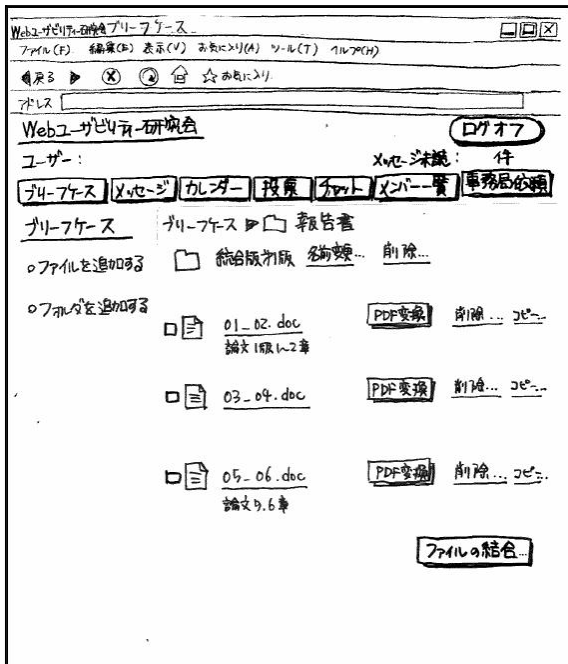 Webユーザビリティー研究会ブリーフケース
ファイル(F) 編集(E) 表示(V) お気に入り(A) ツール(T) ヘルプ(H)
戻る お気に入り
アドレス
Webユーザビリティー研究会 ログオフ
ユーザー: メッセージ未読: 件
ブリーフケース メッセージ カレンダー 投票 チャット メンバー一覧 事務局依頼
ブリーフケース ブリーフケース 報告書
ファイルを追加する 統合版初版 名前変更... 削除...
フォルダを追加する
01_02.doc PDF変換 削除... コピー...
論文1版1~2章
03_04.doc PDF変換 削除... コピー...
05_06.doc PDF変換 削除... コピー...
論文5.6章
ファイルの結合...